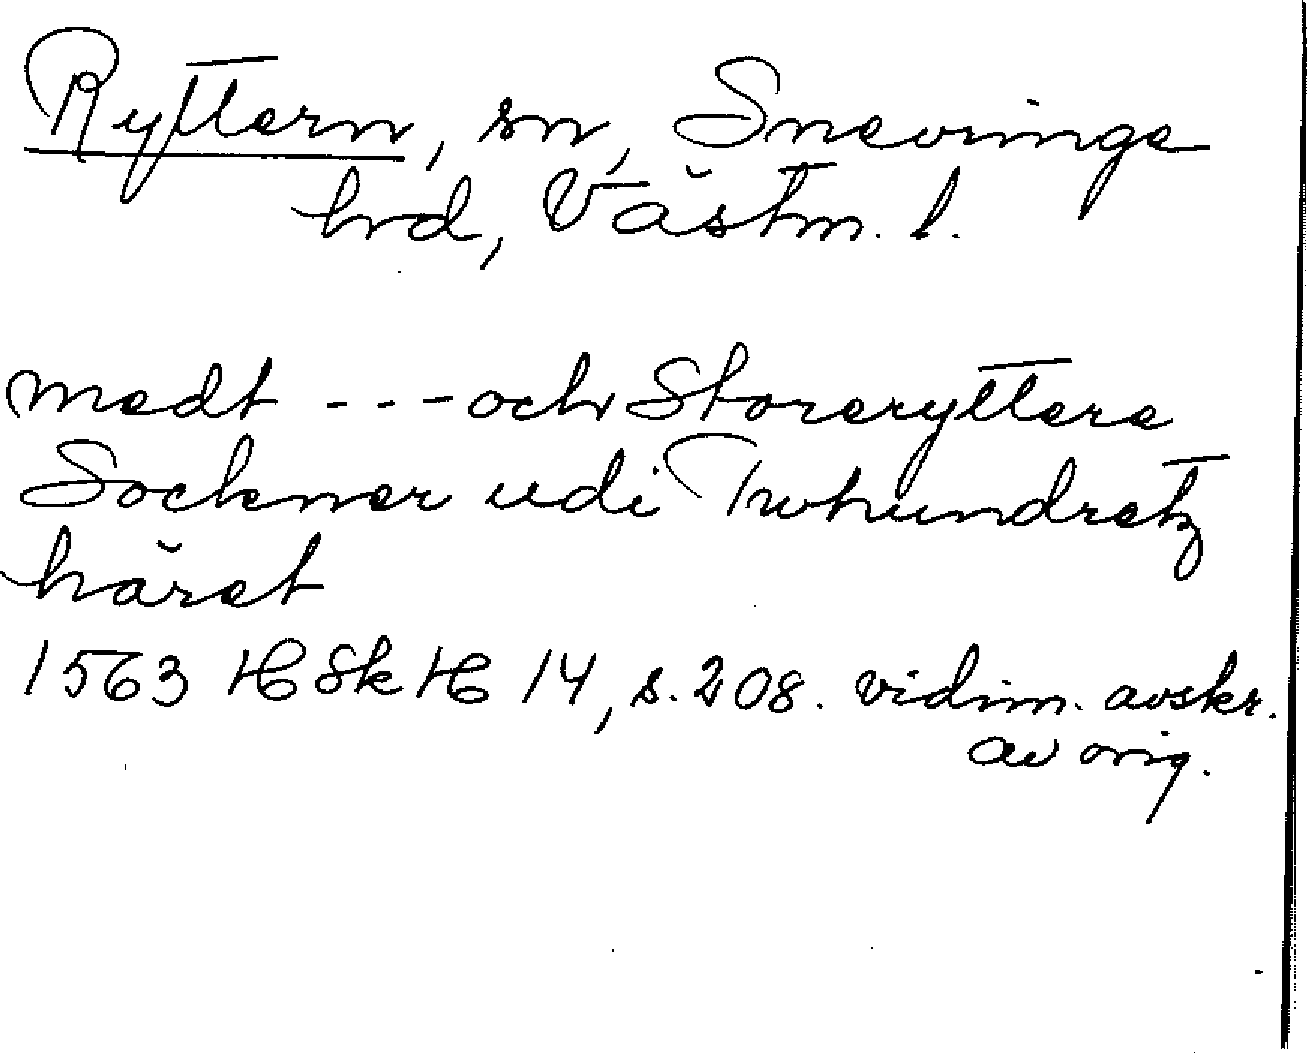 Ryttern, sn, Snevringe
hrd, Västm. l.
medt --- och Storeryttere
Sockner udi Twhundretz
häret
1563 HSkH 14, s. 208. vidim. avskr.
av orig.